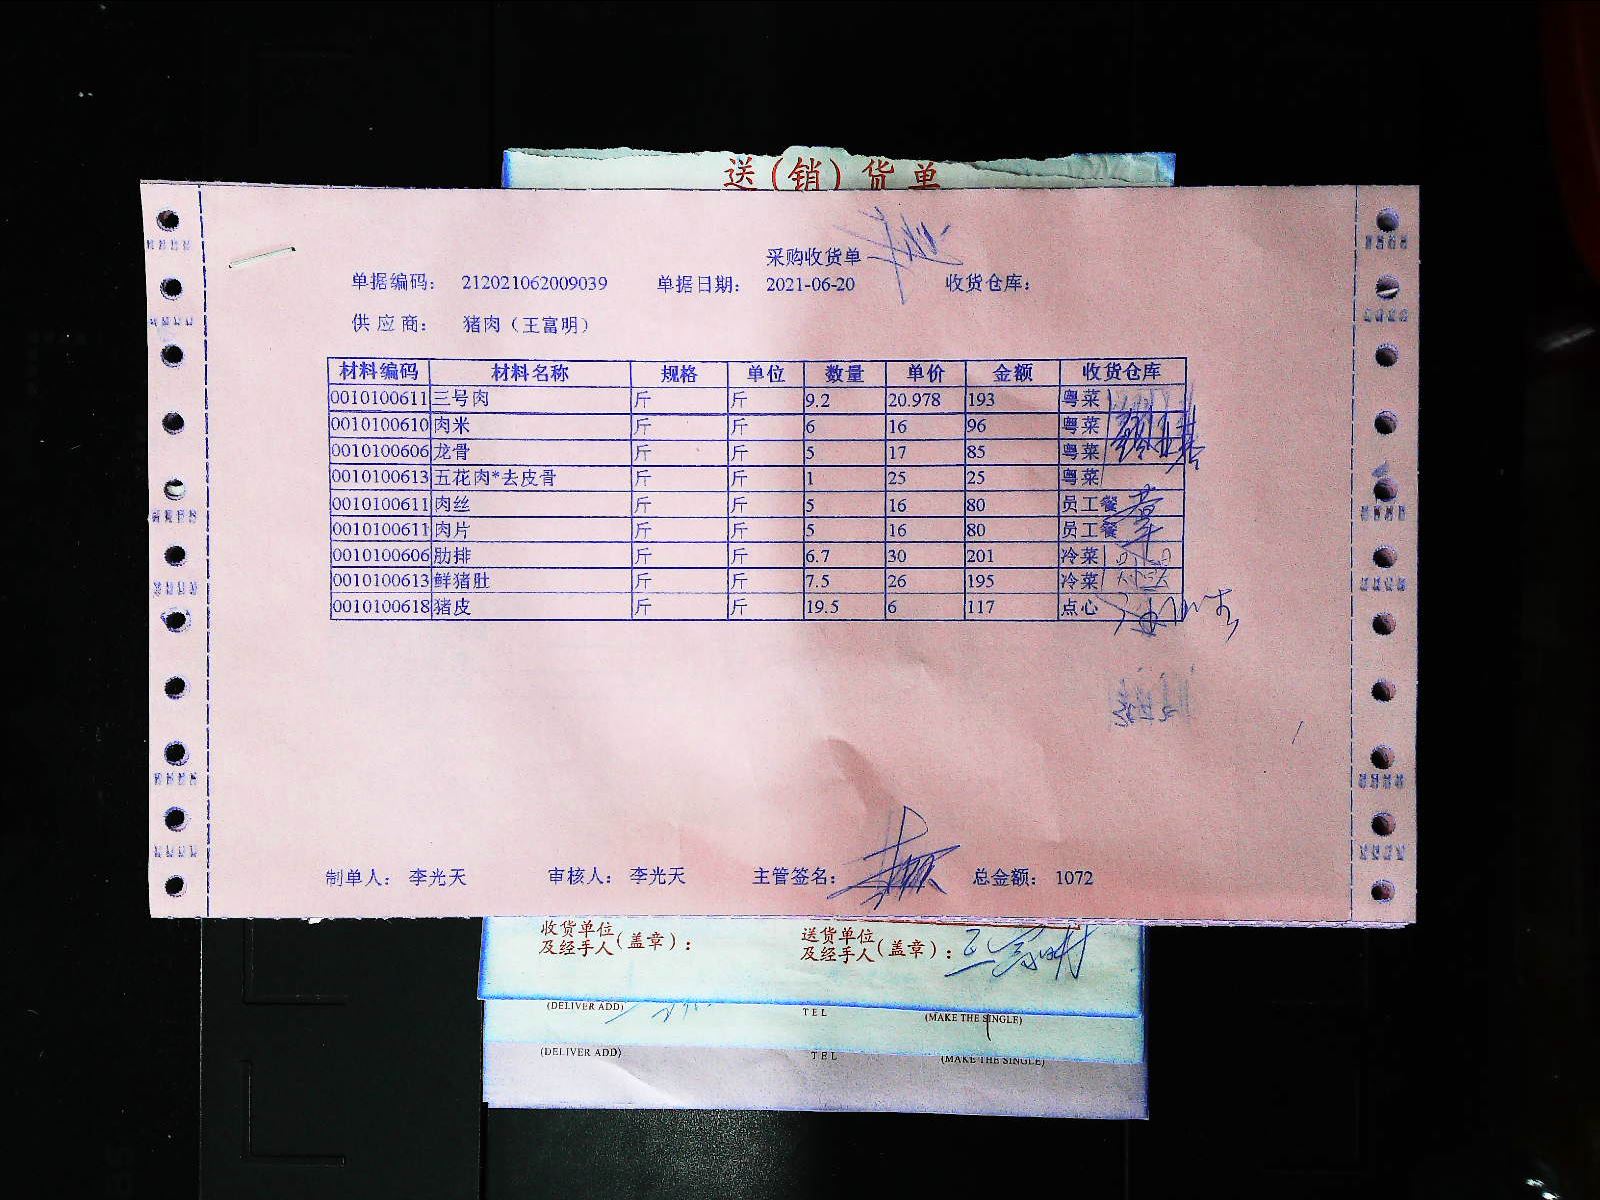 送(销)货单
采购收货单
单据编码: 212021062009039 单据日期: 2021-06-20 收货仓库:
供应商: 猪肉（王富明）
材料编码 材料名称 规格 单位 数量 单价 金额 收货仓库
0010100611 三号肉 斤 斤 9.2 20.978 193 粤菜
0010100610 肉米 斤 斤 6 16 96 粤菜
0010100606 龙骨 斤 斤 5 17 85 粤菜
0010100613 五花肉*去皮骨 斤 斤 1 25 25 粤菜
0010100611 肉丝 斤 斤 5 16 80 员工餐
0010100611 肉片 斤 斤 5 16 80 员工餐
0010100606 肋排 斤 斤 6.7 30 201 冷菜
0010100613 鲜猪肚 斤 斤 7.5 26 195 冷菜
0010100618 猪皮 斤 斤 19.5 6 117 点心
制单人: 李光天 审核人: 李光天 主管签名: 总金额: 1072
收货单位 送货单位
及经手人(盖章): 及经手人(盖章): 王富明
(DELIVER ADD) TEL (MAKE THE SINGLE)
(DELIVER ADD) TEL (MAKE THE SINGLE)